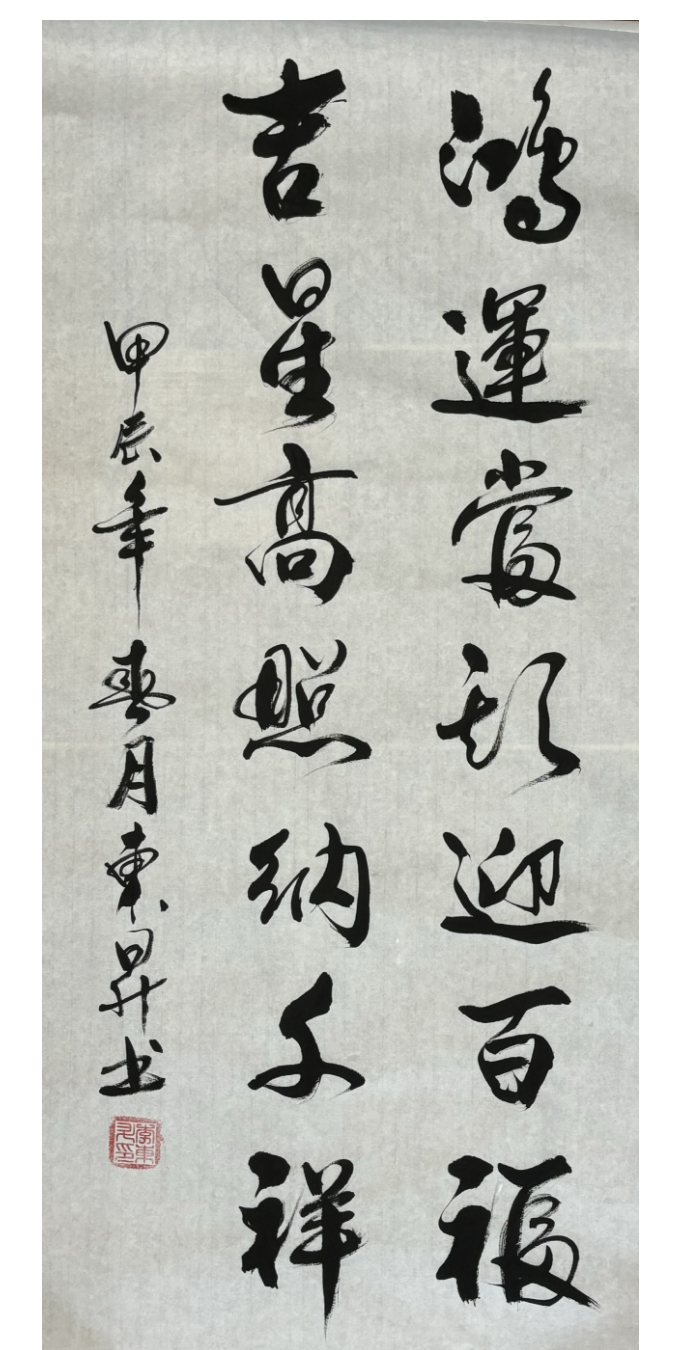 鴻運當頭迎百福
吉星高照納千祥
甲辰年春月東昇书